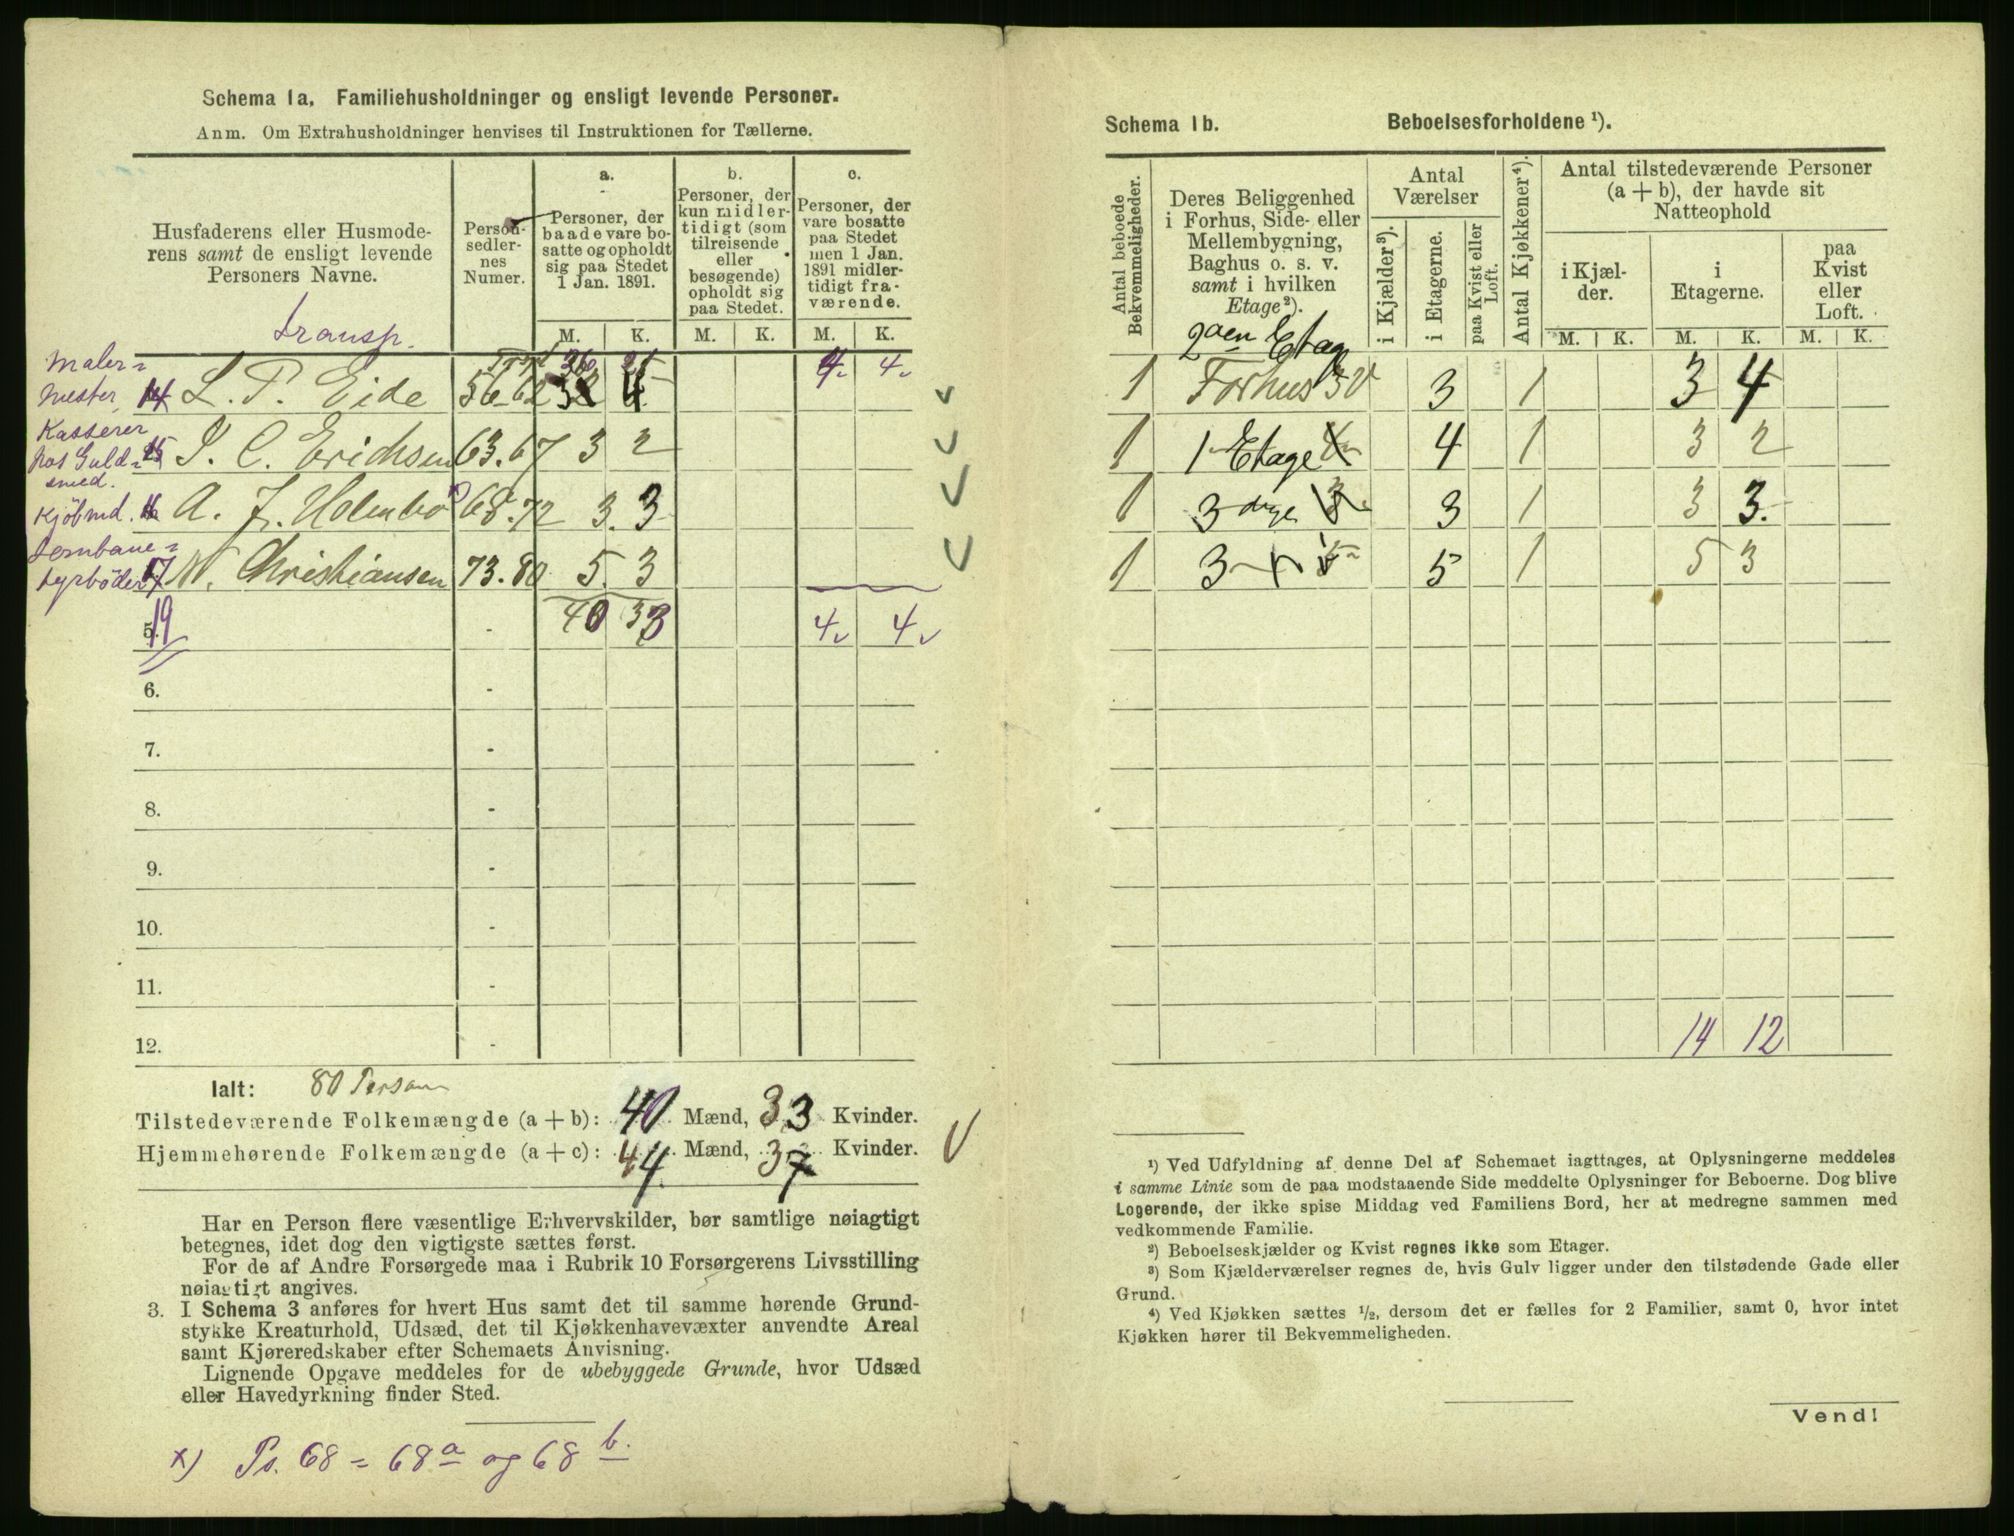 Schema 1a. Familiehusholdninger og ensligt levende Personer.
Anm. Om Extrahusholdninger henvises til Instruktionen for Tællerne.
Husfaderens eller Husmode-
rens samt de ensligt levende
Personers Navne.
Person-
sedler-
nes
Numer.
a.
Personer, der
baade vare bo-
satte og opholdt
sig paa Stedet
1 Jan. 1891.
b.
Personer, der
kun midler-
tidigt (som
tilreisende
eller
besøgende)
opholdt sig
paa Stedet.
c.
Personer, der
vare bosatte
paa Stedet
men 1 Jan.
1891 midler-
tidigt fra-
værende.
M. K. M. K. M. K.
transp. 26 21 4 4
Maler=
mester 14 L. P. Eide 56-62 3 4
Kasserer
hos Guld=
smed. 15 J. C. Erichsen 63.67 3 2
Kjöbmd. 16 A. J. Holmbo x) 68.72 3. 3
Jernbane=
fyrböder 17 N. Christiansen 73.80 5. 3
5. 19 40 33 4 4
6.
7.
8.
9.
10.
11.
12.
Ialt: 80 Person
Tilstedeværende Folkemængde (a + b): 40 Mænd, 33 Kvinder.
Hjemmehørende Folkemængde (a + c): 44 Mænd, 37 Kvinder.
Har en Person flere væsentlige Erhvervskilder, bør samtlige nøiagtigt
betegnes, idet dog den vigtigste sættes først.
For de af Andre Forsørgede maa i Rubrik 10 Forsørgerens Livsstilling
nøiagtigt angives.
3. I Schema 3 anføres for hvert Hus samt det til samme hørende Grund-
stykke Kreaturhold, Udsæd, det til Kjøkkenhavevæxter anvendte Areal
samt Kjøreredskaber efter Schemaets Anvisning.
Lignende Opgave meddeles for de ubebyggede Grunde, hvor Udsæd
eller Havedyrkning finder Sted.
x) Ps. 68 = 68a og 68b.
Schema 1b. Beboelsesforholdene ¹).
Antal beboede
Bekvemmeligheder.
Deres Beliggenhed
i Forhus, Side- eller
Mellembygning,
Baghus o. s. v.
samt i hvilken
Etage²).
Antal
Værelser
i Kjælder³).
i Etagerne.
paa Kvist eller
Loft.
Antal Kjøkkener⁴).
Antal tilstedeværende Personer
(a + b), der havde sit
Natteophold
i Kjæl-
der.
i
Etagerne.
paa
Kvist
eller
Loft.
M. K. M. K. M. K.
2den Etage
1 Forhus 3 1 3 4
1 1 Etage 4 1 3 2
1 3 dye 3 1 3 3.
1 3 5 1 5 3
14 12
¹) Ved Udfyldning af denne Del af Schemaet iagttages, at Oplysningerne meddeles
i samme Linie som de paa modstaaende Side meddelte Oplysninger for Beboerne. Dog blive
Logerende, der ikke spise Middag ved Familiens Bord, her at medregne sammen med
vedkommende Familie.
²) Beboelseskjælder og Kvist regnes ikke som Etager.
³) Som Kjælderværelser regnes de, hvis Gulv ligger under den tilstødende Gade eller
Grund.
⁴) Ved Kjøkken sættes ½, dersom det er fælles for 2 Familier, samt 0, hvor intet
Kjøkken hører til Bekvemmeligheden.
Vend!